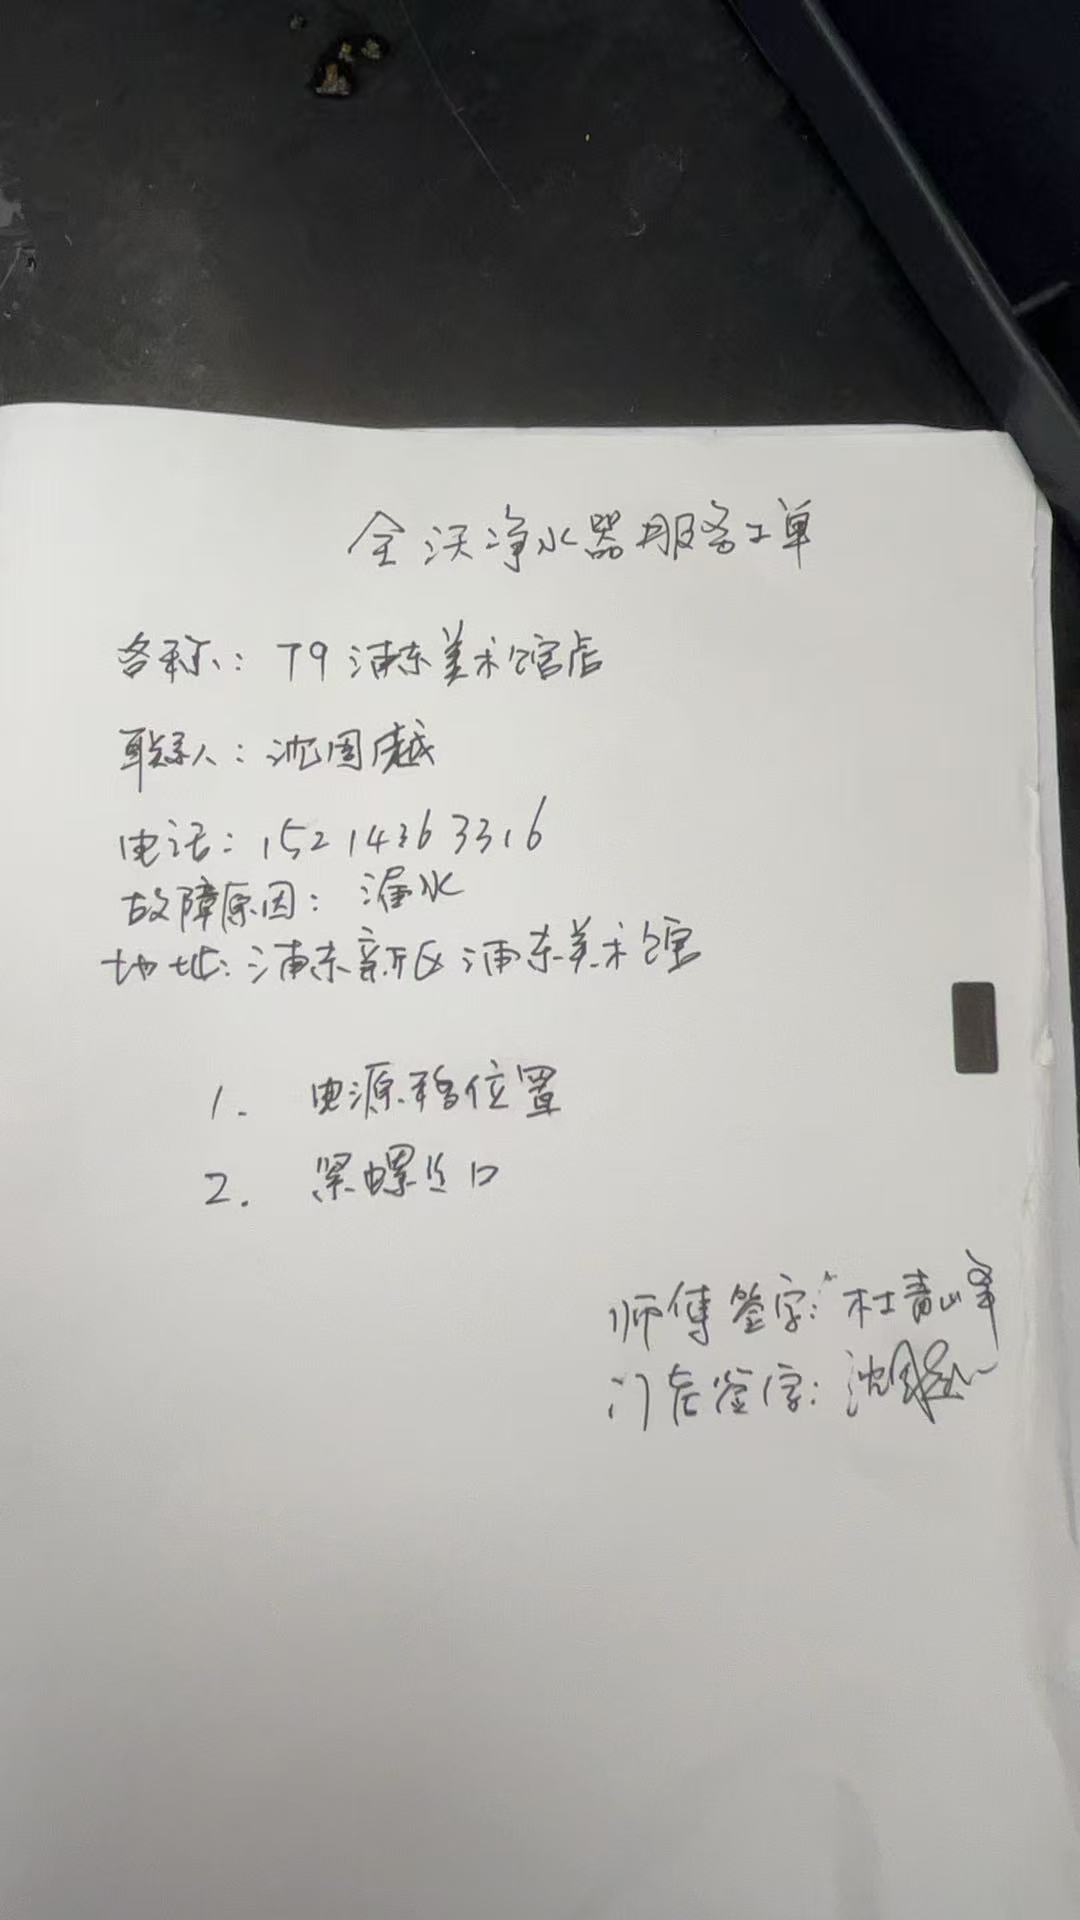 全沃净水器服务工单
名称：T9浦东美术馆店
联系人：沈周越
电话：15214363316
故障原因：漏水
地址：浦东新区浦东美术馆
1. 电源移位置
2. 紧螺丝口
师傅签字：杜青峰
门店签字：沈周越